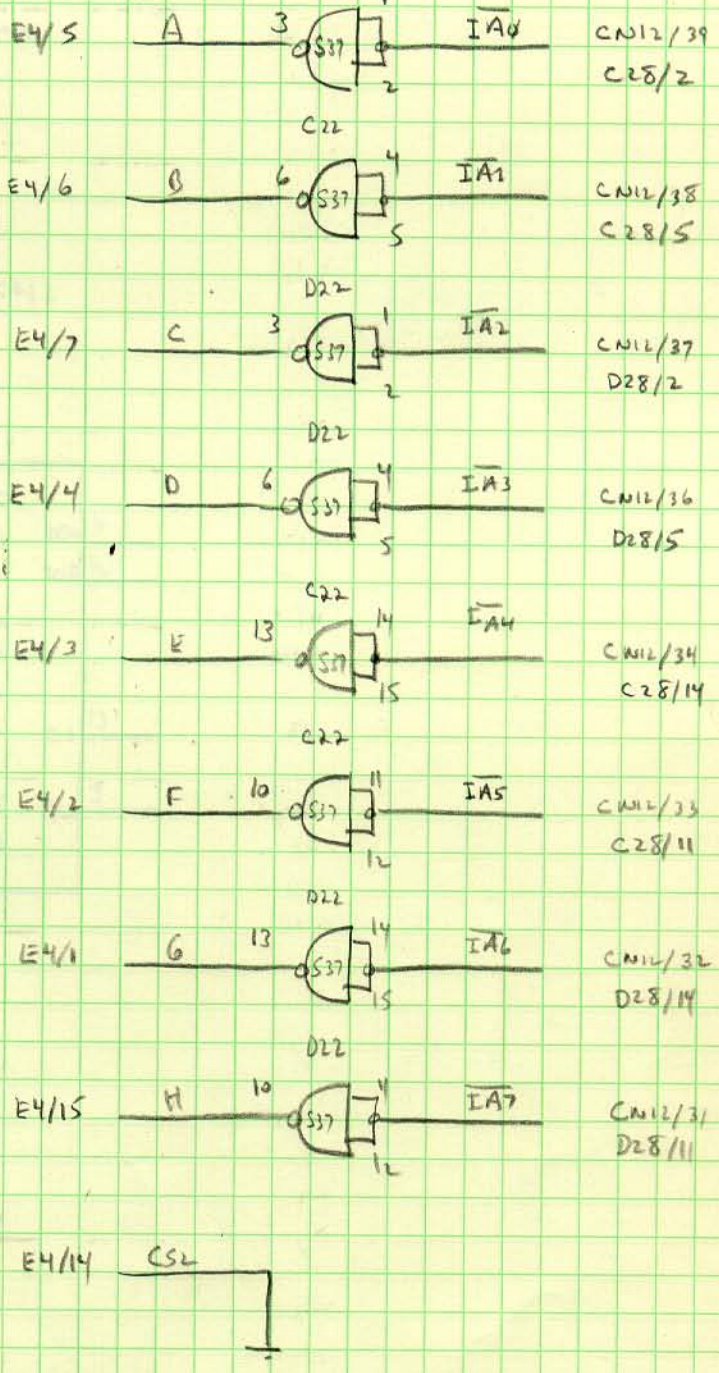 E4/5 A 3 S37 2 IA0 CN12/39
C28/2
C22
E4/6 B 6 S37 4 5 IA1 CN12/38
C28/5
D22
E4/7 C 3 S37 1 2 IA2 CN12/37
D28/2
D22
E4/4 D 6 S37 4 5 IA3 CN12/36
D28/5
C22
E4/3 E 13 S37 14 15 IA4 CN12/34
C28/14
C22
E4/2 F 10 S37 11 12 IA5 CN12/33
C28/11
D22
E4/1 G 13 S37 14 15 IA6 CN12/32
D28/14
D22
E4/15 H 10 S37 11 12 IA7 CN12/31
D28/11
E4/14 CS2